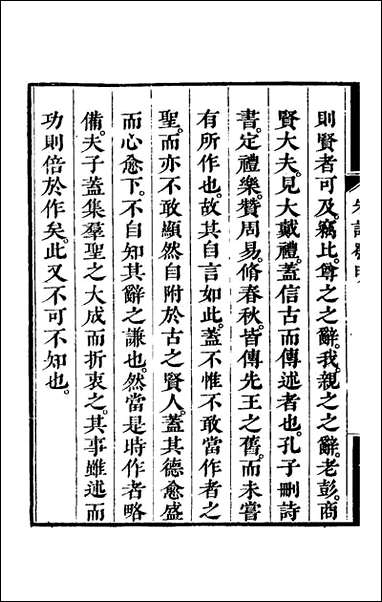 則賢者可及。竊比。尊之之辭。我。親之之辭。老彭。商
賢大夫。見大戴禮。蓋信古而傳述者也。孔子刪詩
書。定禮樂。贊周易。脩春秋。皆傳先王之舊。而未嘗
有所作也。故其自言如此。蓋不惟不敢當作者之
聖。而亦不敢顯然自附於古之賢人。蓋其德愈盛
而心愈下。不自知其辭之謙也。然當是時作者略
備。夫子蓋集羣聖之大成而折衷之。其事雖述而
功則倍於作矣。此又不可不知也。